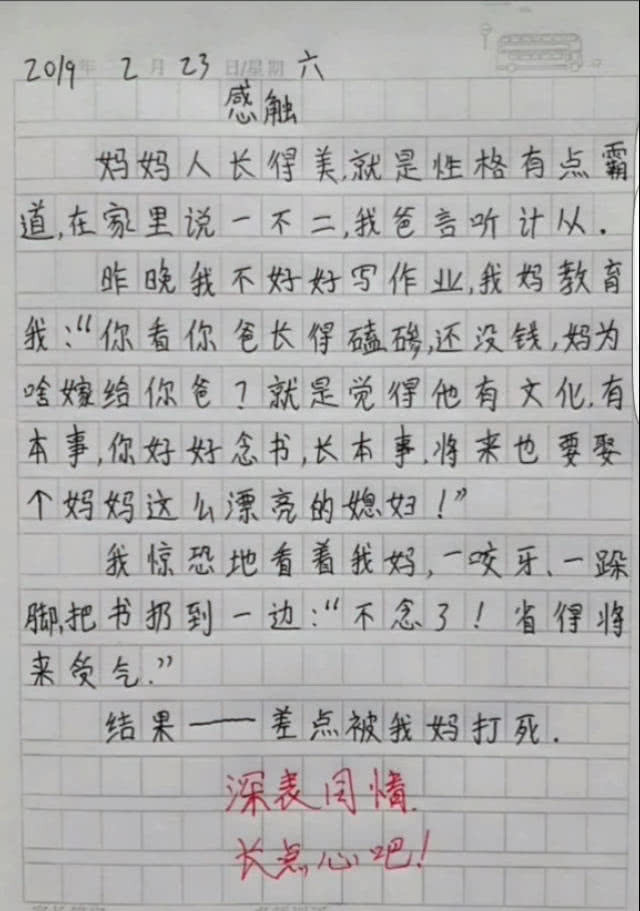 2019年 2月 23日/星期 六
感触
妈妈人长得美,就是性格有点霸
道,在家里说一不二,我爸言听计从.
昨晚我不好好写作业,我妈教育
我:“你看你爸长得磕碜,还没钱,妈为
啥嫁给你爸?就是觉得他有文化,有
本事,你好好念书,长本事,将来也要娶
个妈妈这么漂亮的媳妇!”
我惊恐地看着我妈,一咬牙、一跺
脚,把书扔到一边:“不念了!省得将
来受气.”
结果——差点被我妈打死.
深表同情.
长点心吧!